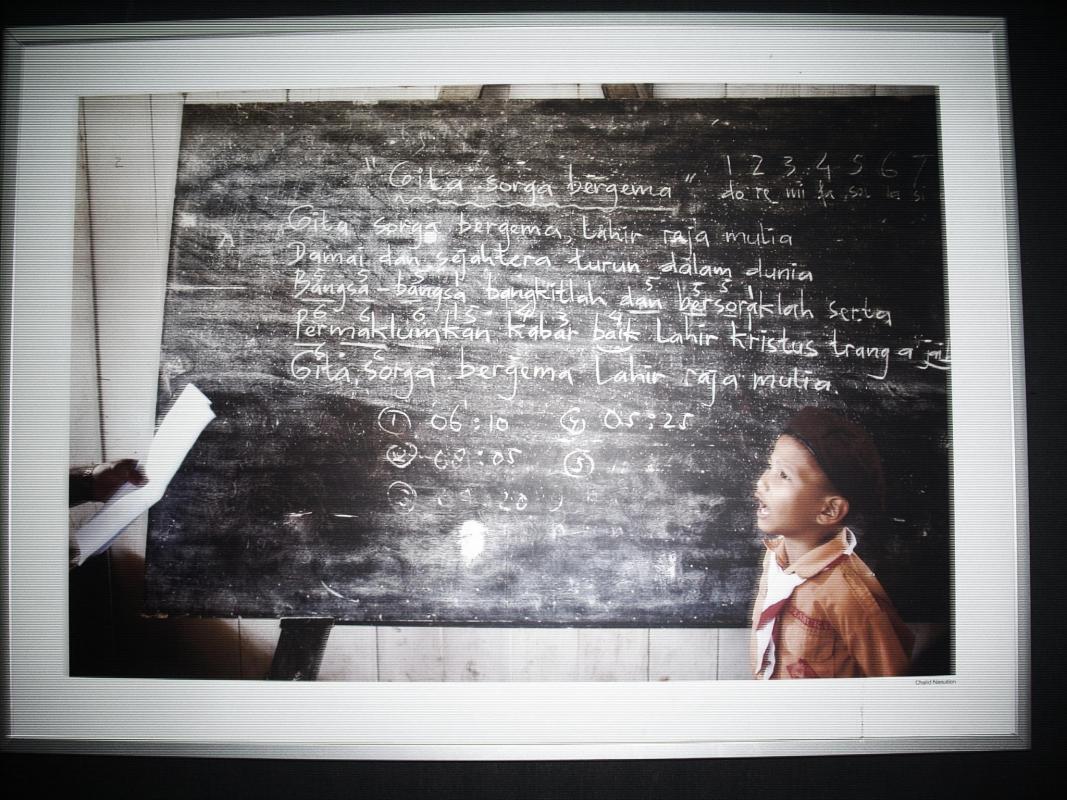 "Gita sorga bergema"
1 2 3 4 5 6 7
do re mi fa sol la si
Gita sorga bergema, Lahir raja mulia
Damai dan sejahtera turun dalam dunia
5 5 1
Bangsa-bangsa bangkitlah dan bersoraklah serta
Permaklumkan kabar baik Lahir Kristus trang a
Gita sorga bergema Lahir raja mulia.
① 06:10 ④ 05:25
② 08:05 ⑤
③ 20
Chalid Nasution